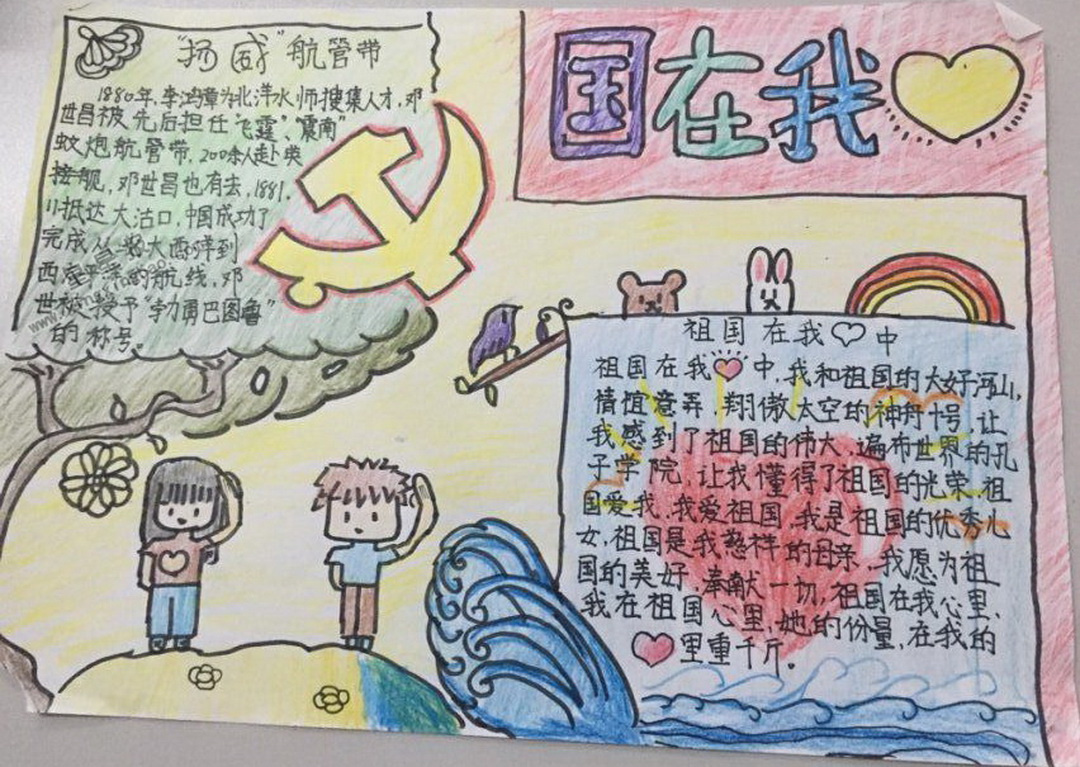 "扬威"航管带
1880年,李鸿章为北洋水师搜集人才,邓
世昌被先后担任"飞霆"、"震南"
蚊炮航管带,200余人赴英
接舰,邓世昌也有去,1881.
11抵达大沽口,中国成功了
完成从 大西洋到
西 平洋的航线,邓
世被授予"勃勇巴图鲁"
的称号。
国在我
祖国在我中
祖国在我中,我和祖国的大好河山,
情谊意弄,翔傲太空的神舟十号,让
我感到了祖国的伟大,遍布世界的孔
子学院,让我懂得了祖国的光荣,祖
国爱我,我爱祖国,我是祖国的优秀儿
女,祖国是我慈祥的母亲,我愿为祖
国的美好,奉献一切,祖国在我心里,
我在祖国心里,她的份量,在我的
里重千斤。